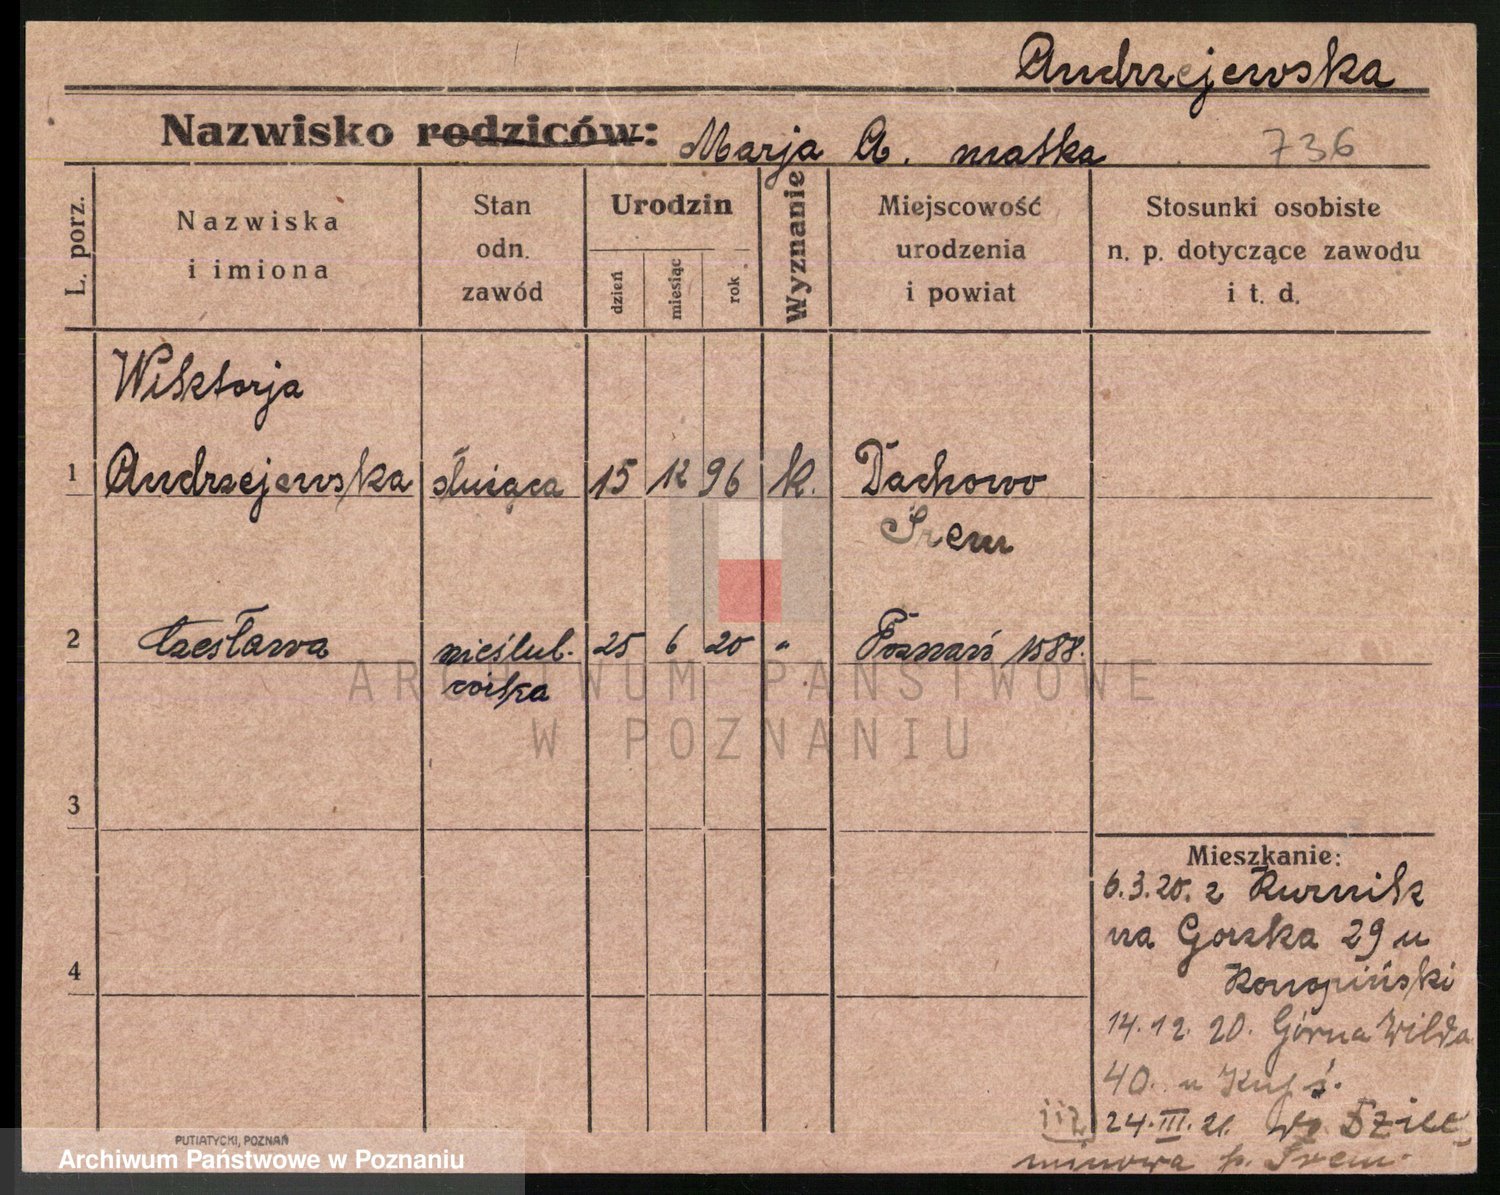 Andrzejewska
Nazwisko rodziców: Marja A. matka 736
L. porz.
Nazwiska
i imiona
Stan
odn.
zawód
Urodzin
dzień
miesiąc
rok
Wyznanie
Miejscowość
urodzenia
i powiat
Stosunki osobiste
n. p. dotyczące zawodu
i t. d.
Wiktorja
1 Andrzejewska służąca 15 12 96 k. Dachowo
Śrem
2 Czesława nieślub. 25 6 20 " Poznań 1588.
córka
ARCHIWUM PAŃSTWOWE
W POZNANIU
3
4
Mieszkanie:
6.3.20. z Kurnik
na Gorska 29 u
Konopiński
14.12.20. Górna Wilda
40. u
24.III.21. Do
p. Śrem.
PUTIATYCKI, POZNAŃ
Archiwum Państwowe w Poznaniu